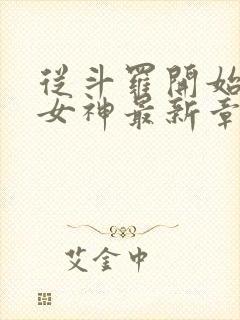 從斗羅開始
女神最新章
艾金中